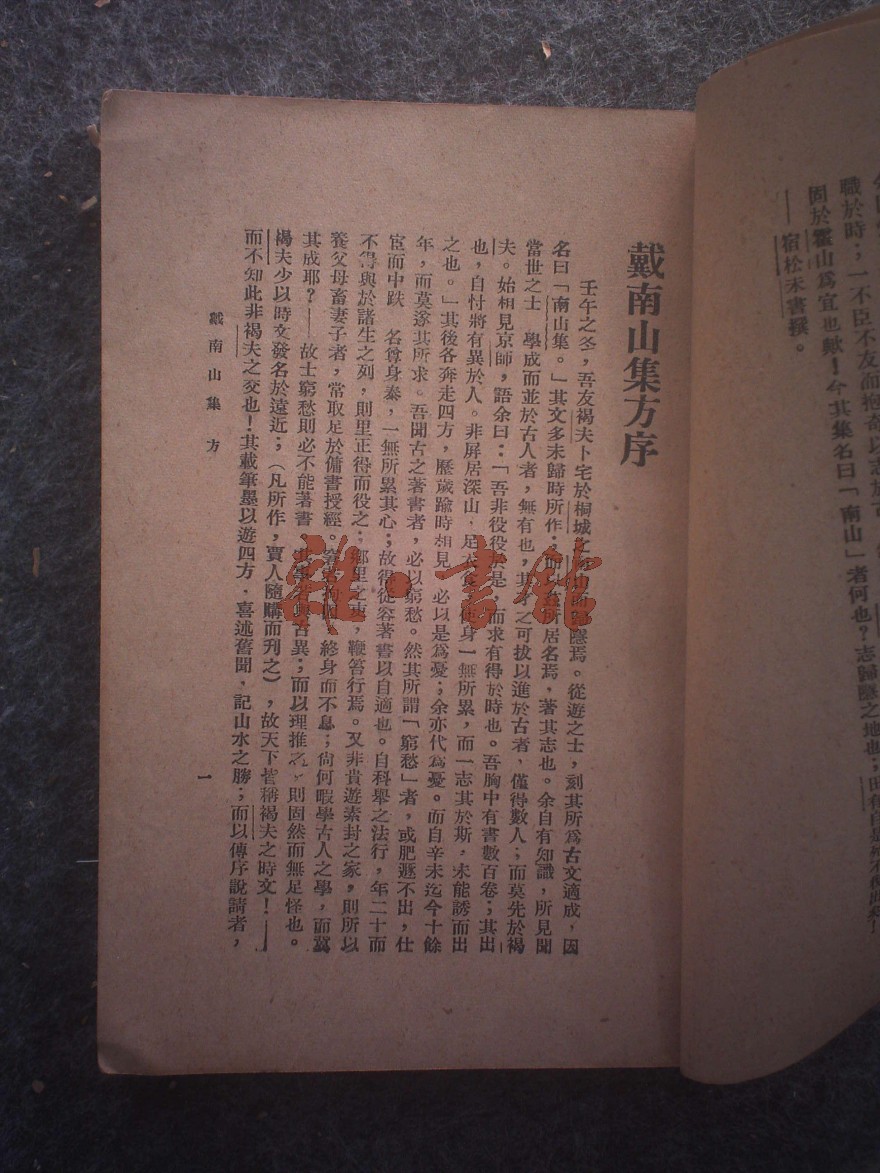 職於時；一不臣不友而抱奇以志於
固於霍山爲宜也歟！今其集名曰「南山」者何也？志歸隱之地也；
——宿松朱書撰。
戴南山集方序
壬午之冬，吾友褐夫卜宅於桐城之南山而歸隱焉。從遊之士，刻其所爲古文適成，因
名曰「南山集。」其文多未歸時所作；而以茲所居名焉，著其志也。余自有知識，所見聞
當世之士 學成而並於古人者，無有也，其才之可拔以進於古者，僅得數人；而莫先於褐
夫。始相見京師，語余曰：「吾非役役於是，而求有得於時也。吾胸中有書數百卷；其出
也，自忖將有異於人。非屏居深山，足衣食，使身一無所累，而一志其於斯，未能誘而出
之也。」其後各奔走四方，歷歲踰時相見，必以是爲憂；余亦代爲憂。而自辛未迄今十餘
年，而莫遂其所求。吾聞古之著書者，必以窮愁。然其所謂「窮愁」者，或肥遯不出，仕
宦而中跌 名尊身泰，一無所累其心；故得從容著書以自適也。自科舉之法行，年二十而
不得與於諸生之列，則里正得而役之；鄉里之吏，鞭笞行焉。又非貴遊素封之家，則所以
養父母畜妻子者，常取足於傭書授經。窘若拘囚，終身而不息；尙何暇學古人之學，而冀
其成耶？——故士窮愁則必不能著書 其事若與古異；而以理推之，則固然而無足怪也。
褐夫少以時文發名於遠近；（凡所作，賈人隨購而刊之），故天下皆稱褐夫之時文！——
而不知此非褐夫之文也！其載筆墨以遊四方，喜述舊聞，記山水之勝；而以傳序說請者，
戴南山集 方
一
雜·書館